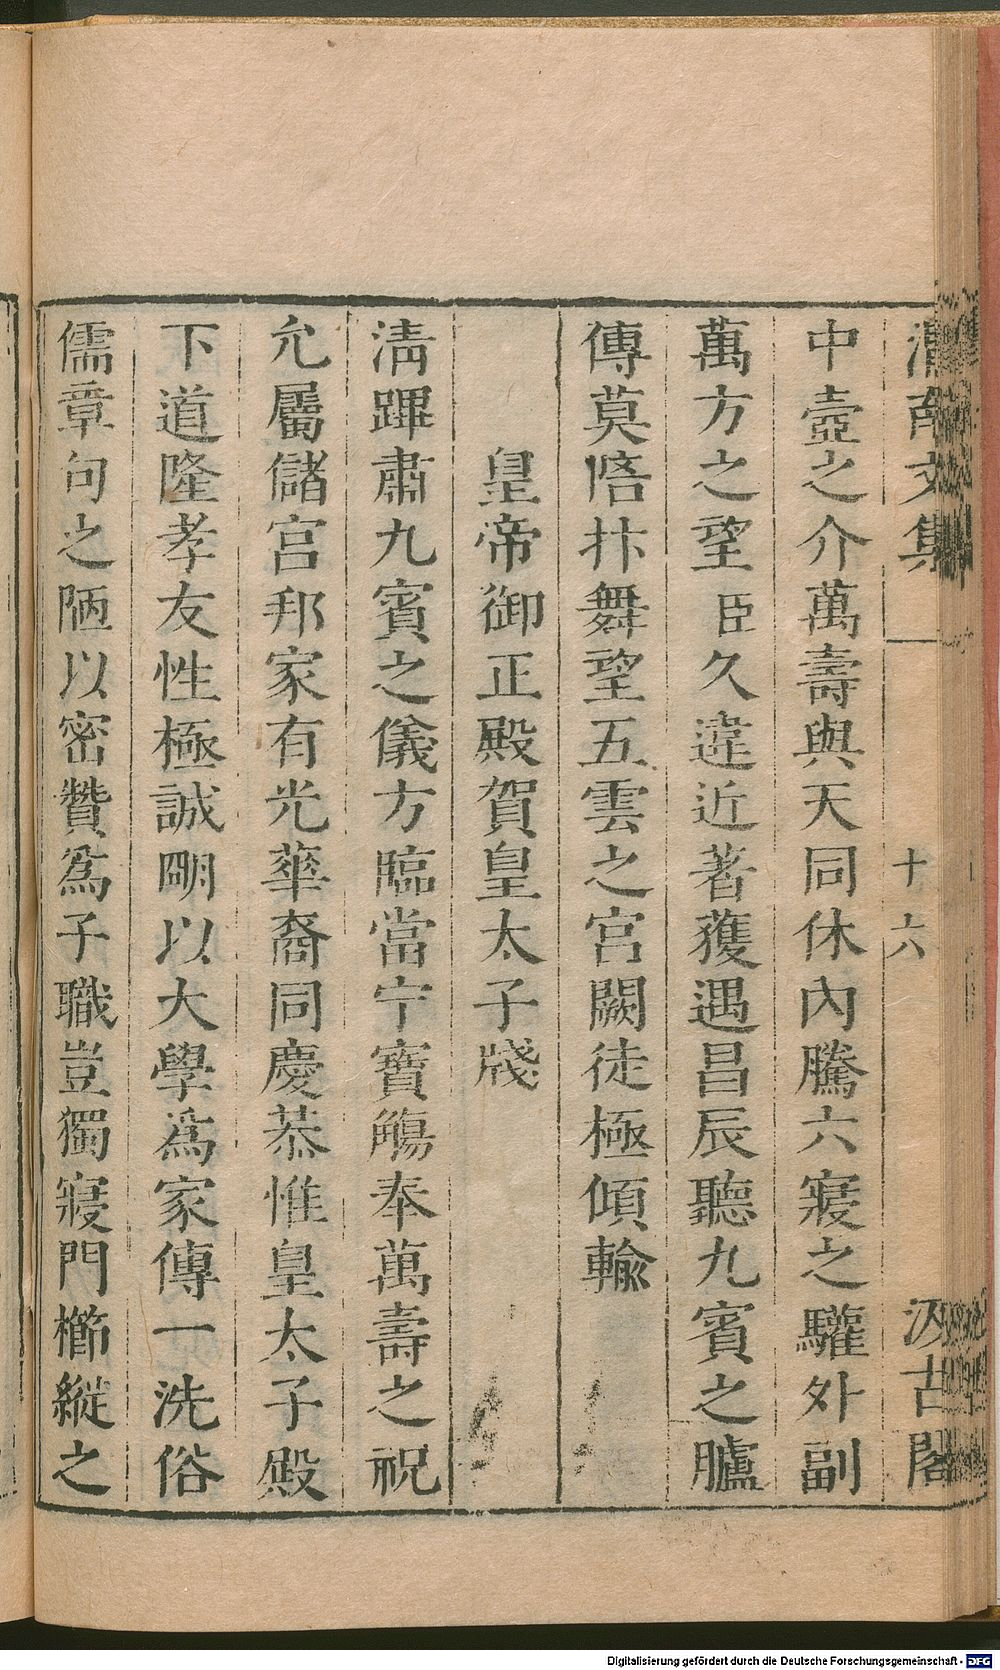 渭南文集
十六
汲古閣
中壼之介萬壽與天同休內騰六寢之驩外副
萬方之望臣久違近著獲遇昌辰聽九賓之臚
傳莫陪抃舞望五雲之宮闕徒極傾輸
皇帝御正殿賀皇太子牋
淸蹕肅九賓之儀方臨當宁寶觴奉萬壽之祝
允屬儲宮邦家有光華裔同慶恭惟皇太子殿
下道隆孝友性極誠明以大學爲家傳一洗俗
儒章句之陋以密贊爲子職豈獨寢門櫛縰之
Digitalisierung gefördert durch die Deutsche Forschungsgemeinschaft - DFG